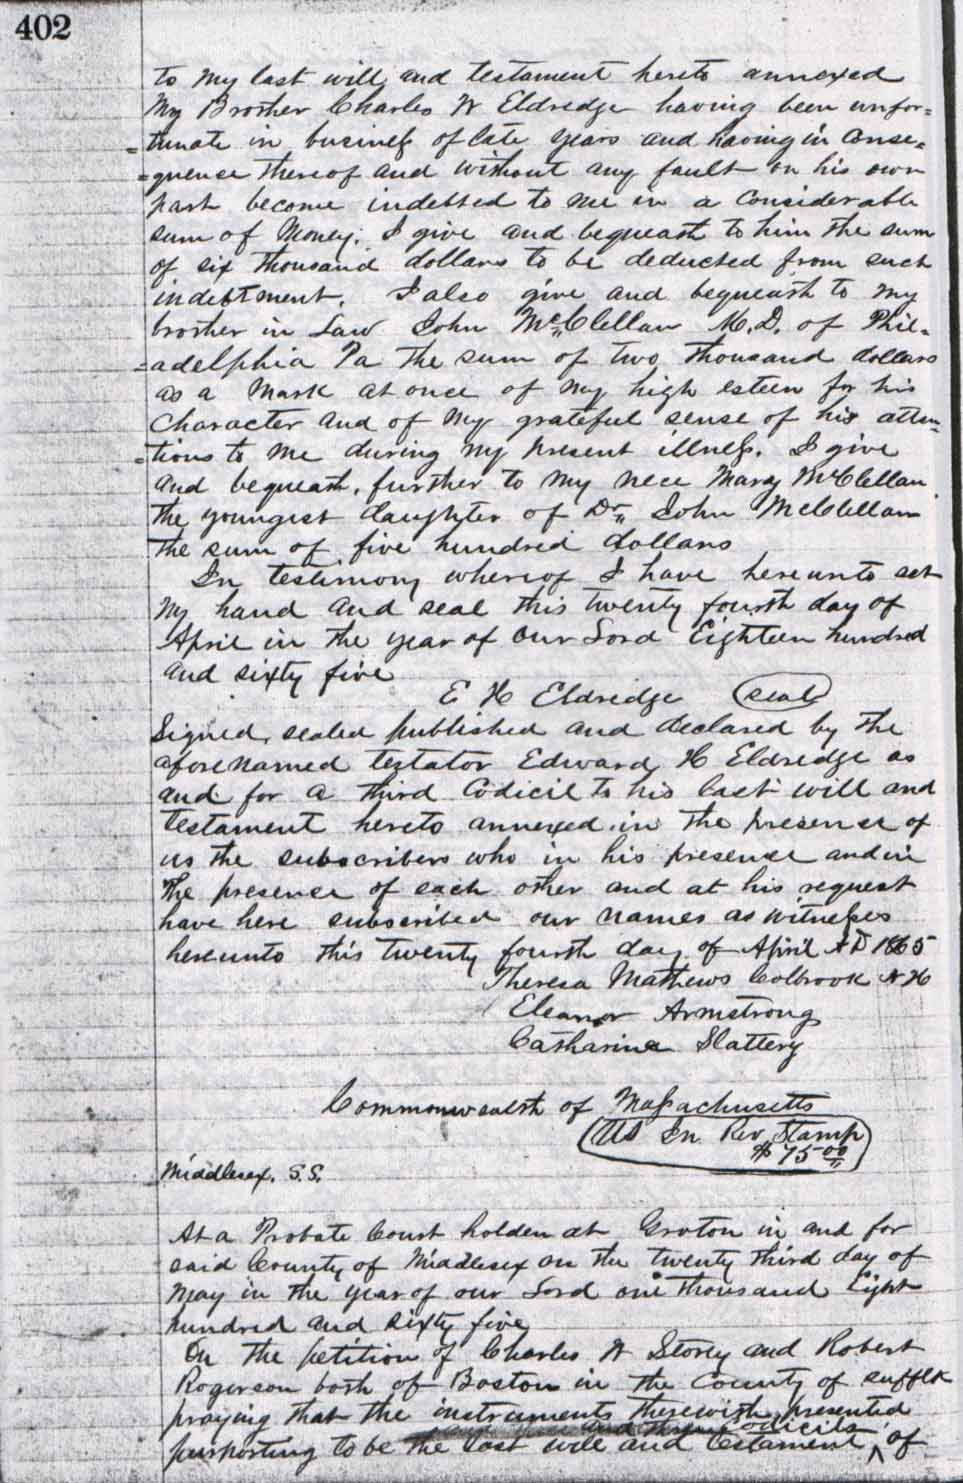 402
to my last will and testament hereto annexed
My Brother Charles W Eldredge having been unfor=
=tunate in business of late years and having in conse=
=quence thereof and without any fault on his own
part become indebted to me in a considerable
sum of Money. I give and bequeath to him the sum
of six thousand dollars to be deducted from such
indebtment. I also give and bequeath to my
brother in Law John McClellan M.D. of Phil=
=adelphia Pa the sum of two thousand dollars
as a mark at once of my high esteem for his
Character and of my grateful sense of his atten=
=tions to me during my present illness. I give
and bequeath, further to my neice Mary McClellan
the youngest daughter of Dr John McClellan
the sum of five hundred dollars
In testimony whereof I have hereunto set
my hand and seal this twenty fourth day of
April in the year of our Lord Eighteen hundred
and sixty five
E H Eldredge seal
Signed, sealed published and declared by the
aforenamed testator Edward H Eldredge as
and for a third Codicil to his last will and
testament hereto annexed in the presence of
us the subscribers who in his presence and in
the presence of each other and at his request
have here subscribed our names as witnesses
hereunto this twenty fourth day of April AD 1865
Theresa Mathews Colbrook N H
Eleanor Armstrong
Catharine Slattery
Commonwealth of Massachusetts
US In Rev Stamp
$75.00
Middlesex. S.S.
At a Probate Court holden at Groton in and for
said County of Middlesex on the twenty third day of
May in the year of our Lord one thousand Eight
hundred and sixty five
On the petition of Charles W Storey and Robert
Rogerson both of Boston in the County of Suffolk
praying that the instruments therewith presented
and three codicils
purporting to be the last will and testament ^ of